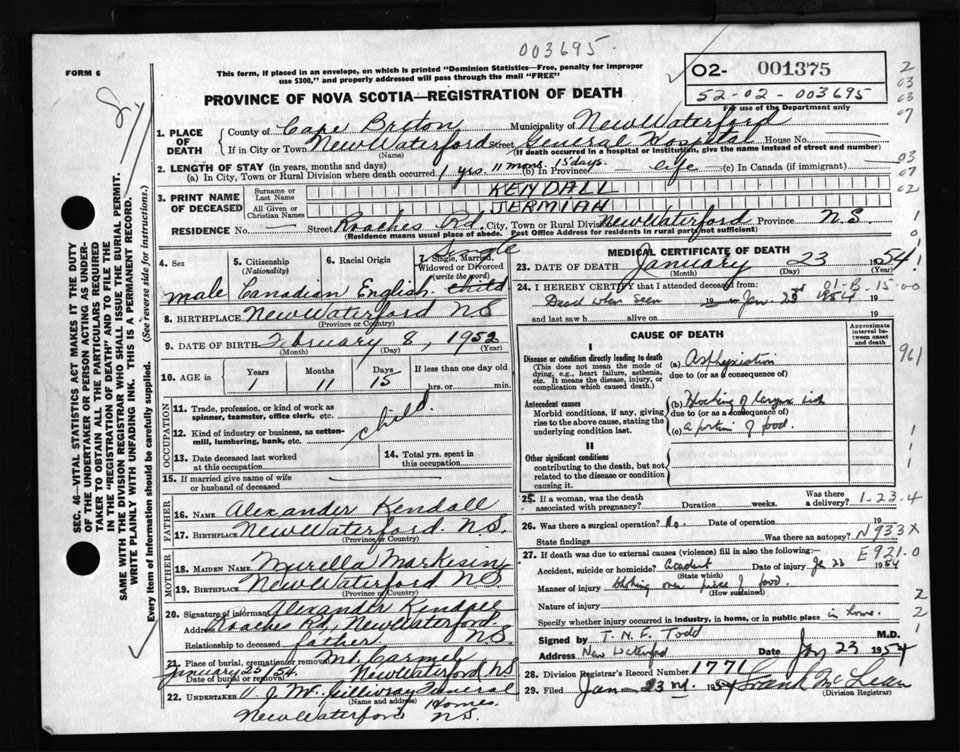 003695.
FORM 6
This form, if placed in an envelope, on which is printed "Dominion Statistics—Free, penalty for improper
use $300," and properly addressed will pass through the mail "FREE"
O2- 001375
52-02-003695
For use of the Department only
PROVINCE OF NOVA SCOTIA—REGISTRATION OF DEATH
1. PLACE OF DEATH
County of Cape Breton Municipality of New Waterford
If in City or Town New Waterford Street General Hospital House No.
(Name) (If death occurred in a hospital or institution, give the name instead of street and number)
2. LENGTH OF STAY (in years, months and days)
(a) In City, Town or Rural Division where death occurred 1 yrs. 11 mons. 15 days. (b) In Province life (c) In Canada (if immigrant)
3. PRINT NAME OF DECEASED
Surname or Last Name KENDALL
All Given or Christian Names JERMIAH
RESIDENCE No. — Street Roaches Rd. City or Town New Waterford Province N.S.
(Residence means usual place of abode. Post Office Address for residents in rural parts not sufficient)
4. Sex male
5. Citizenship (Nationality) Canadian
6. Racial Origin English
7. Single, Married, Widowed or Divorced (write the word) Single child
8. BIRTHPLACE New Waterford N.S.
(Province or Country)
9. DATE OF BIRTH February 8, 1952
(Month) (Day) (Year)
10. AGE in Years Months Days If less than one day old
1 11 15 hrs. or min.
OCCUPATION
11. Trade, profession, or kind of work as spinner, teamster, office clerk, etc. child.
12. Kind of industry or business, as cotton-mill, lumbering, bank, etc.
13. Date deceased last worked at this occupation
14. Total yrs. spent in this occupation
15. If married give name of wife or husband of deceased
FATHER
16. NAME Alexander Kendall
17. BIRTHPLACE New Waterford. N.S.
(Province or Country)
MOTHER
18. MAIDEN NAME Murella
19. BIRTHPLACE New Waterford N.S
(Province or Country)
20. Signature of informant Alexander Kendall
Address Roaches Rd, New Waterford. N.S.
Relationship to deceased father
21. Place of burial, cremation or removal Mt. Carmel
January 25/54. New Waterford N.S
Date of burial or removal
22. UNDERTAKER V. J. McGillivray Funeral Homes.
(Name and address)
New Waterford N.S.
MEDICAL CERTIFICATE OF DEATH
23. DATE OF DEATH January 23 1954
(Month) (Day) (Year)
24. I HEREBY CERTIFY that I attended deceased from: 01-B.15-00
Dead when seen 19 to Jan 23rd 1954 19
and last saw h alive on 19
CAUSE OF DEATH
Approximate interval between onset and death
I
Disease or condition directly leading to death
(This does not mean the mode of dying, e.g., heart failure, asthenia, etc. It means the disease, injury, or complication which caused death.)
(a) Asphyxiation
due to (or as a consequence of)
Antecedent causes
Morbid conditions, if any, giving rise to the above cause, stating the underlying condition last.
(b) Blocking of larynx with
due to (or as a consequence of)
(c) a portion of food.
II
Other significant conditions
contributing to the death, but not related to the disease or condition causing it.
25. If a woman, was the death associated with pregnancy? Duration weeks. Was there a delivery? 1-23-4
26. Was there surgical operation? No. Date of operation 19
State findings Was there an autopsy? N933X
27. If death was due to external causes (violence) fill in also the following:— E921.0
Accident, suicide or homicide? Accident Date of injury Ja 23 1954
(State which)
Manner of injury piece of food.
(How sustained)
Nature of injury
Specify whether injury occurred in industry, in home, or in public place in home.
Signed by T. N. F. Todd M.D.
Address New Waterford Jan 23 1954
28. Division Registrar's Record Number 1771
29. Filed Jan 23rd 1954 Frank
(Division Registrar)
SEC. 46—VITAL STATISTICS ACT MAKES IT THE DUTY
OF THE UNDERTAKER OR PERSON ACTING AS UNDER-
TAKER TO OBTAIN ALL THE PARTICULARS REQUIRED
IN THE "REGISTRATION OF DEATH" AND TO FILE THE
SAME WITH THE DIVISION REGISTRAR WHO SHALL ISSUE THE BURIAL PERMIT.
WRITE PLAINLY WITH UNFADING INK. THIS IS A PERMANENT RECORD.
Every item of information should be carefully supplied. (See reverse side for instructions.)
961